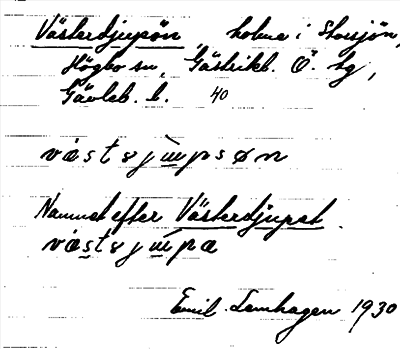 Västerdjupön, holme i Storsjön,
Högbo sn, Gästrikl. Ö. tg,
Gävleb. l. 40
västsjupsøn
Namnet efter Västerdjupet.
västsjupa
Emil Lemhagen 1930